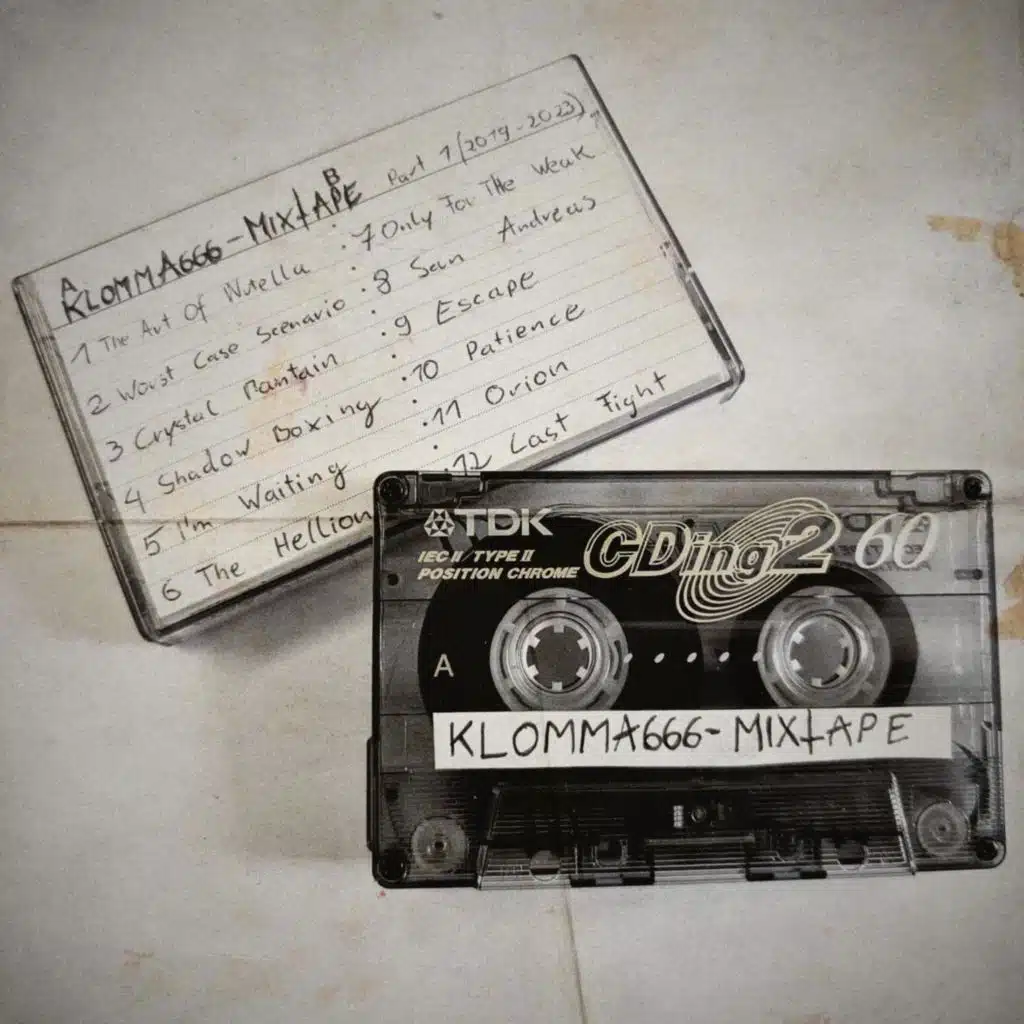 A B
KLOMMA666 - MIXTAPE Part 1 (2019 - 2023)
1 The Art Of Nutella : 7 Only For The Weak
2 Worst Case Scenario : 8 San Andreas
3 Crystal Mantain : 9 Escape
4 Shadow Boxing : 10 Patience
5 I'm Waiting : 11 Orion
6 The Hellion : 12 Last Fight
TDK
IEC II / TYPE II
POSITION CHROME
CDing2 60
A
KLOMMA666- MIXTAPE